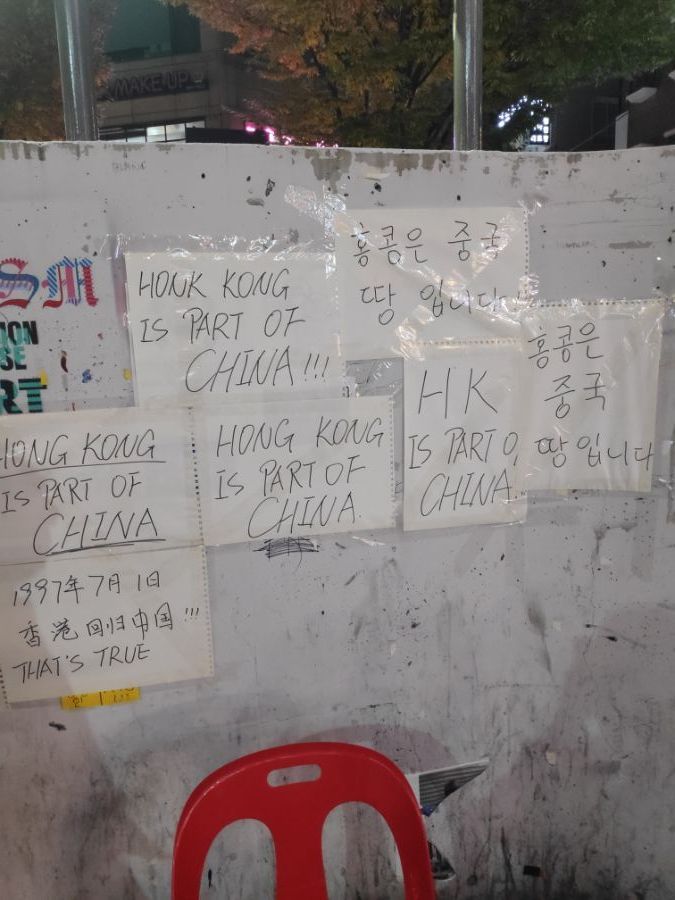 MAKE-UP
SM
TION
SE
RT
HONK KONG
IS PART OF
CHINA !!!
홍콩은 중국
땅 입니다
HK
IS PART O
CHINA.
홍콩은
중국
땅입니다
HONG KONG
IS PART OF
CHINA
HONG KONG
IS PART OF
CHINA.
1997年7月1日
香港回归中国!!!
THAT'S TRUE